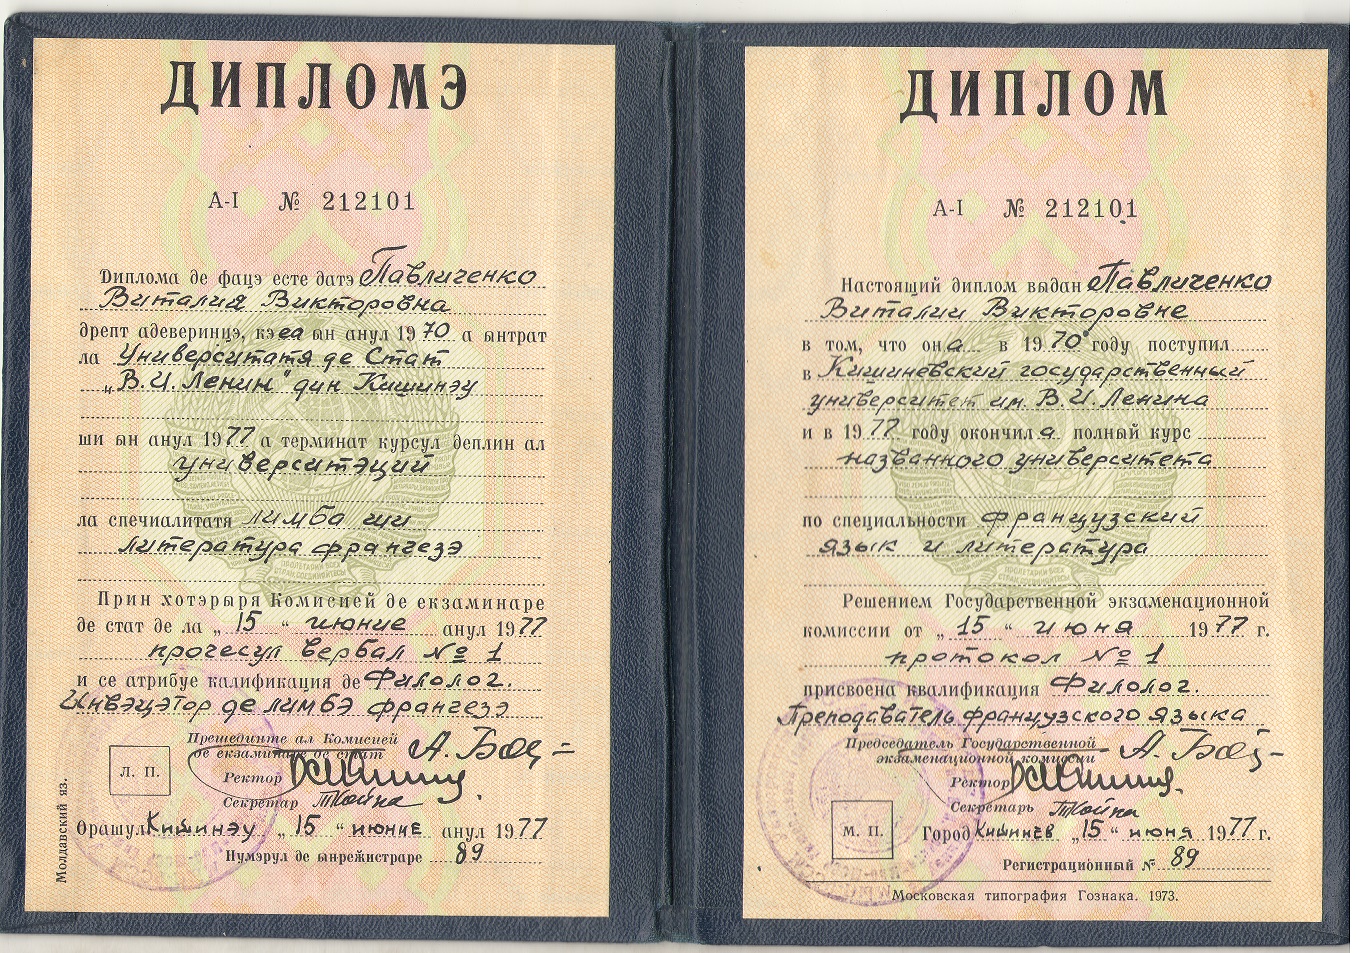 ДИПЛОМЭ
А-I № 212101
Диплома де фацэ есте датэ Павличенко
Виталия Викторовна
дрепт адеверинцэ, кэ еа ын анул 1970 а ынтрат
ла Университатя де Стат
„В.И. Ленин" дин Кишинэу
ши ын анул 1977 а терминат курсул деплин ал
университэций
ла специалитатя лимба ши
литература франчезэ
Прин хотэрыря Комисией де екзаминаре
де стат де ла „15“ июние анул 1977
прочесул вербал № 1
и се атрибуе калификация де Филолог.
Инвэцэтор де лимбэ франчезэ
Прешединте ал Комисией
де екзаминаре де стат
Л. П.
Ректор
Секретар
Орашул Кишинэу „15“ июние анул 1977
Нумэрул де ынрежистраре 89
Молдавский яз.
ДИПЛОМ
А-I № 212101
Настоящий диплом выдан Павличенко
Виталии Викторовне
в том, что она в 1970 году поступил
в Кишиневский государственный
университет им. В.И. Ленина
и в 1977 году окончила полный курс
названного университета
по специальности французский
язык и литература
Решением Государственной экзаменационной
комиссии от „15“ июня 1977 г.
протокол № 1
присвоена квалификация Филолог.
Преподаватель французского языка
Председатель Государственной
экзаменационной комиссии
Ректор
Секретарь
М. П.
Город Кишинев „15“ июня 1977 г.
Регистрационный № 89
Московская типография Гознака. 1973.